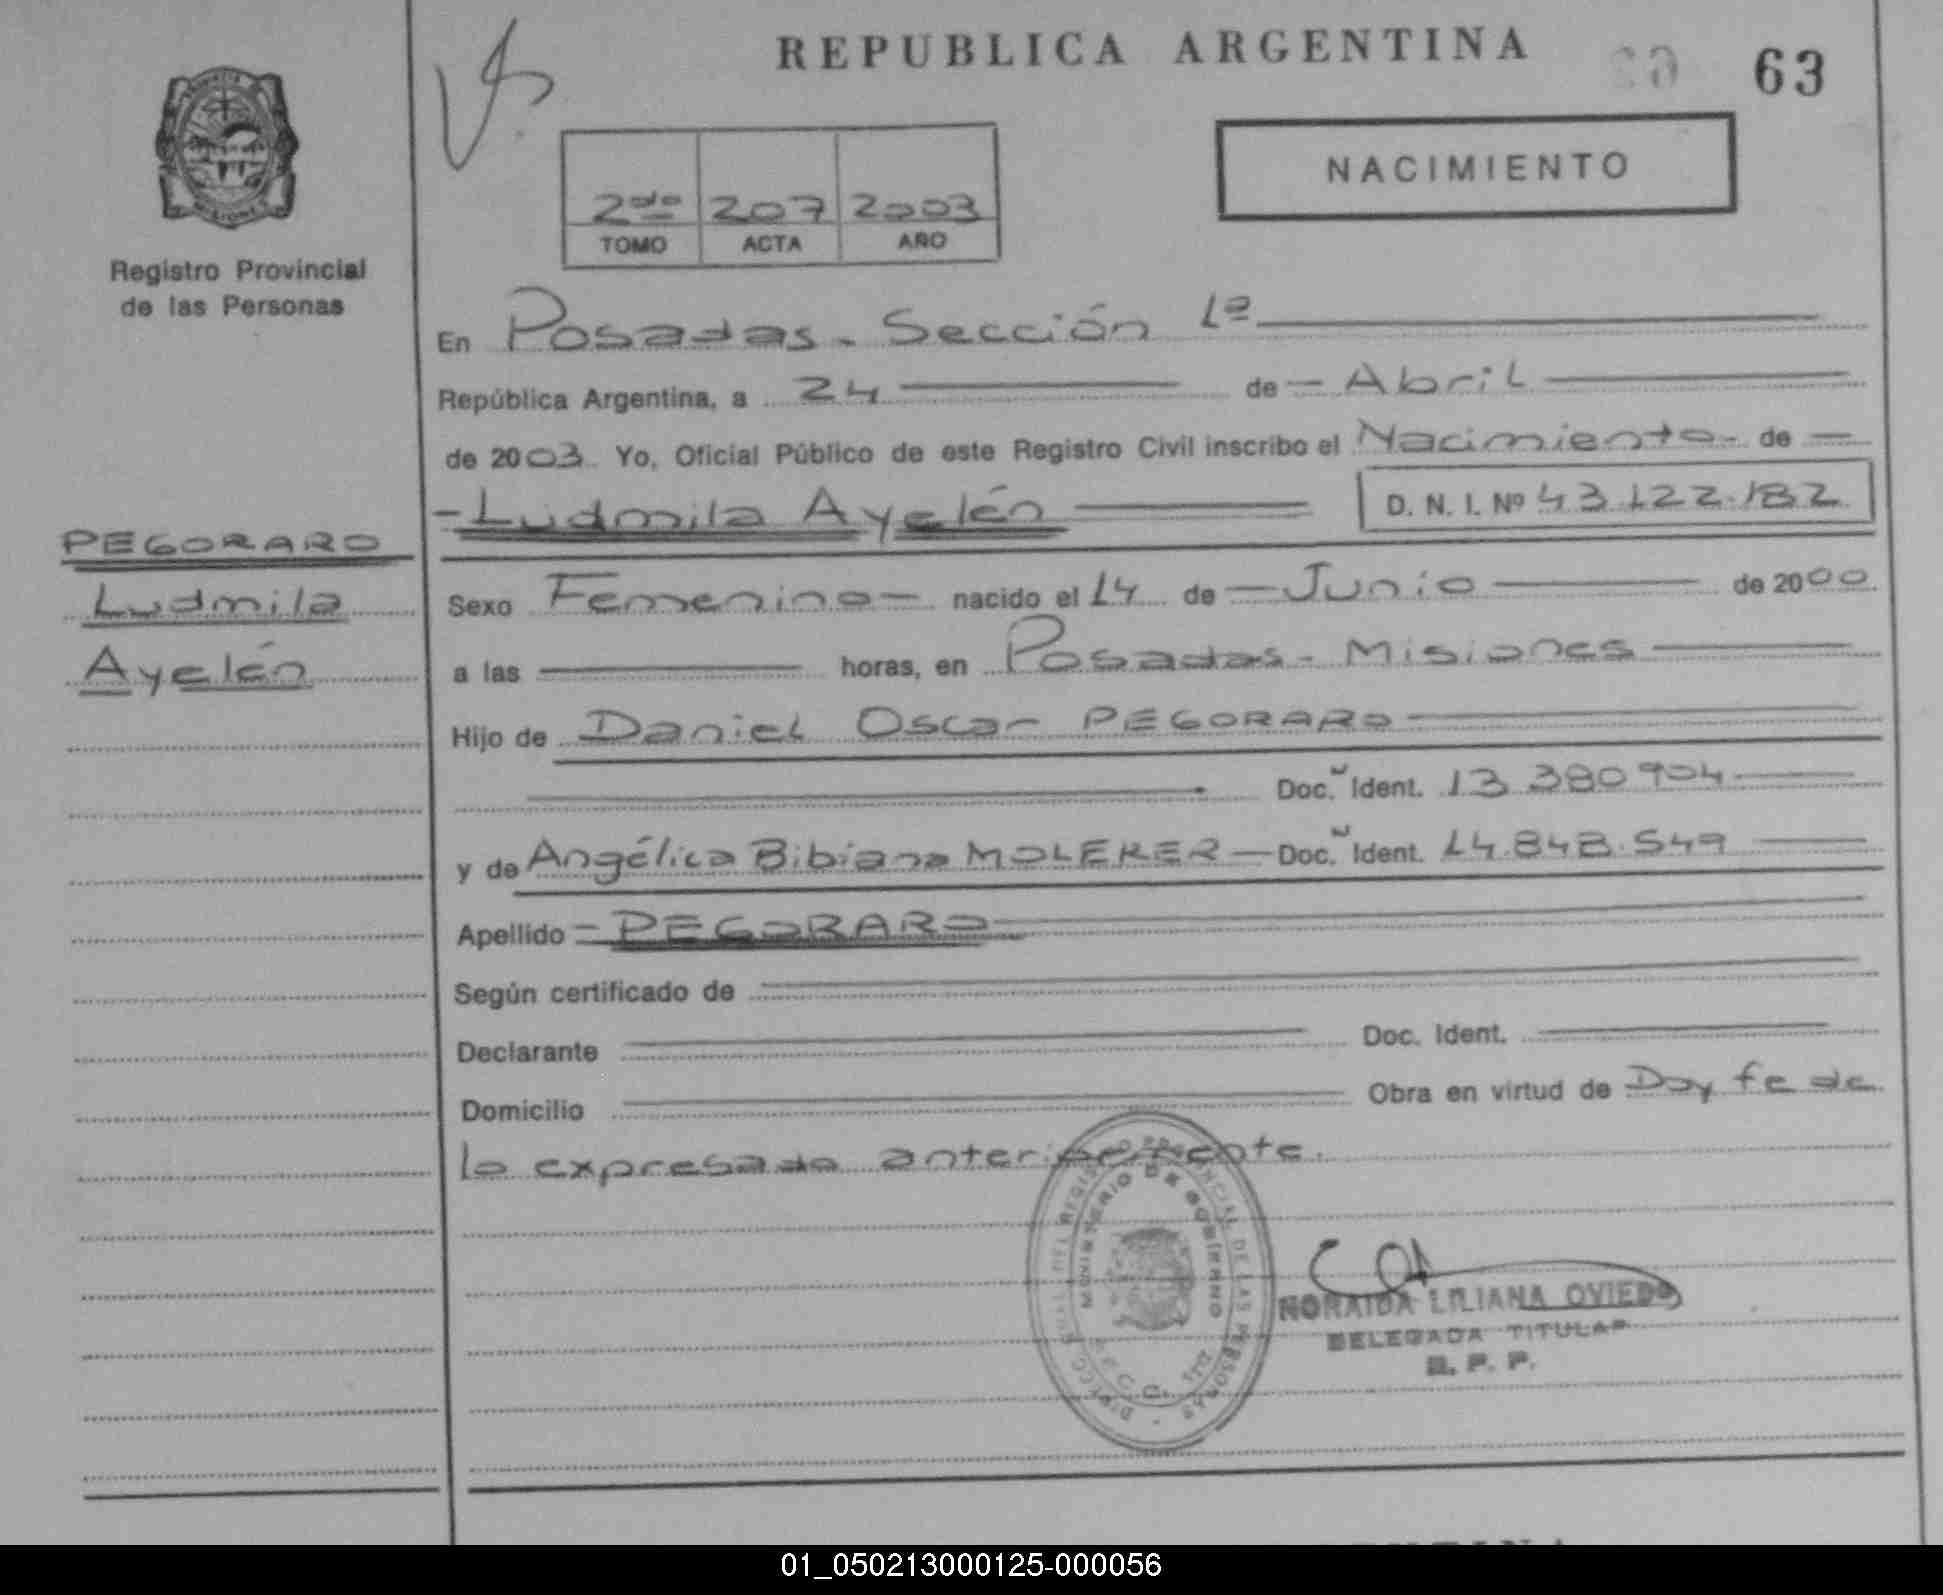 REPUBLICA ARGENTINA
63
NACIMIENTO
2do 207 2003
TOMO ACTA AÑO
MISIONES
Registro Provincial
de las Personas
En Posadas - Sección 1ª
República Argentina, a 24 de Abril
de 2003 Yo, Oficial Público de este Registro Civil inscribo el Nacimiento de
Ludmila Ayelén D. N. I. Nº 43.122.182
PEGORARO
Ludmila
Ayelén
Sexo Femenino nacido el 14 de Junio de 2000
a las horas, en Posadas - Misiones
Hijo de Daniel Oscar PEGORARO
Doc. Ident. 13.380.904
y de Angélica Bibiana MOLEKER Doc. Ident. 14.848.549
Apellido PEGORARO
Según certificado de
Declarante Doc. Ident.
Domicilio Obra en virtud de Doy fe de
lo expresado anteriormente.
MINISTERIO DE GOBIERNO
NORAIDA LILIANA OVIEDO
DELEGADA TITULAR
R. P. P.
01_050213000125-000056